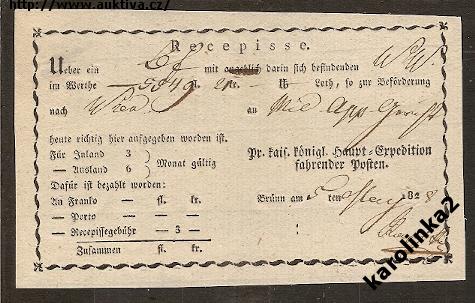 http://www.auktiva.cz/
Recepisse.
Ueber ein mit angeblich darin sich befindenden
im Werthe Loth, so zur Beförderung
nach Wien an App. Gericht
heute richtig hier aufgegeben worden ist.
Für Inland 3
— Ausland 6 } Monat gültig
Dafür ist bezahlt worden:
An Franko — fl. kr.
— Porto — fl. kr.
— Recepissegebühr — 3 —
Zusammen fl. kr.
Pr. kais. königl. Haupt-Expedition
fahrender Posten.
Brünn am 5 ten 828
karolinka2